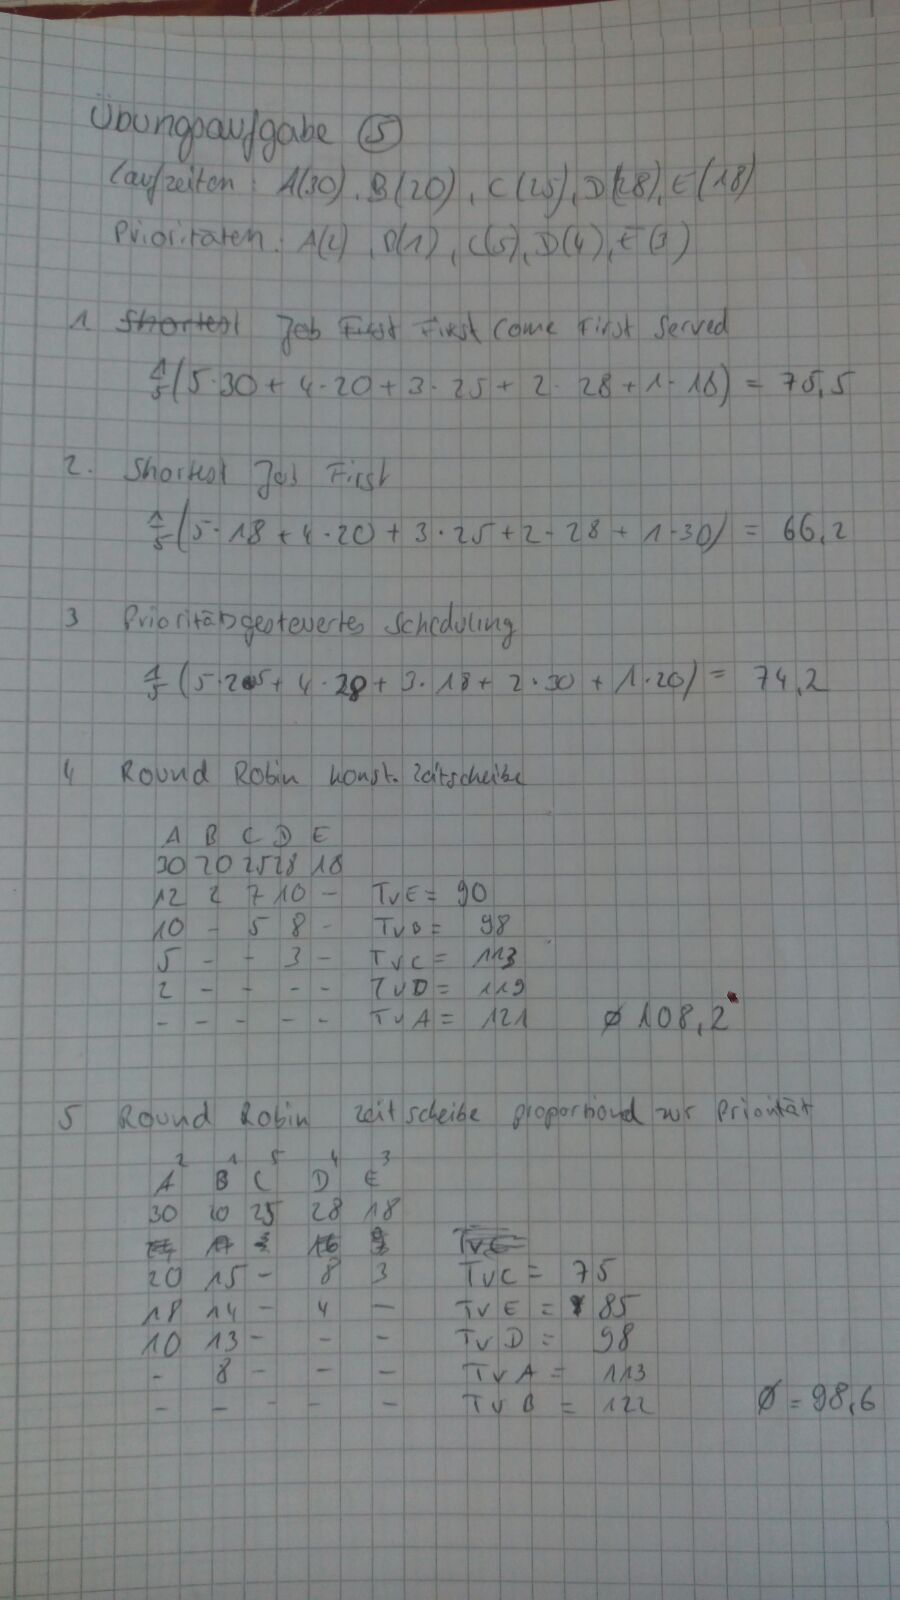 Übungsaufgabe ⑤
Laufzeiten: A(30), B(20), C(25), D(28), E(18)
Prioritäten: A(2), B(1), C(5), D(4), E(3)
1. Shortest Job First First Come First Served
1/5 (5·30 + 4·20 + 3·25 + 2·28 + 1·18) = 75,5
2. Shortest Job First
1/5 (5·18 + 4·20 + 3·25 + 2·28 + 1·30) = 66,2
3 Prioritätsgesteuertes Scheduling
1/5 (5·25 + 4·28 + 3·18 + 2·30 + 1·20) = 74,2
4 Round Robin konst. Zeitscheibe
A B C D E
30 20 25 28 18
12 2 7 10 - TvE = 90
10 - 5 8 - TvB = 98
5 - - 3 - TvC = 113
2 - - - - TvD = 119
- - - - - TvA = 121 ø 108,2
5 Round Robin Zeitscheibe proportional zur Priorität
2 1 5 4 3
A B C D E
30 20 25 28 18
20 15 - 8 3 TvC = 75
18 14 - 4 - TvE = 85
10 13 - - - TvD = 98
- 8 - - - TvA = 113
- - - - - TvB = 122 ø = 98,6